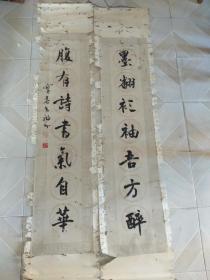 墨翻衫袖吾方醉
腹有詩書氣自華